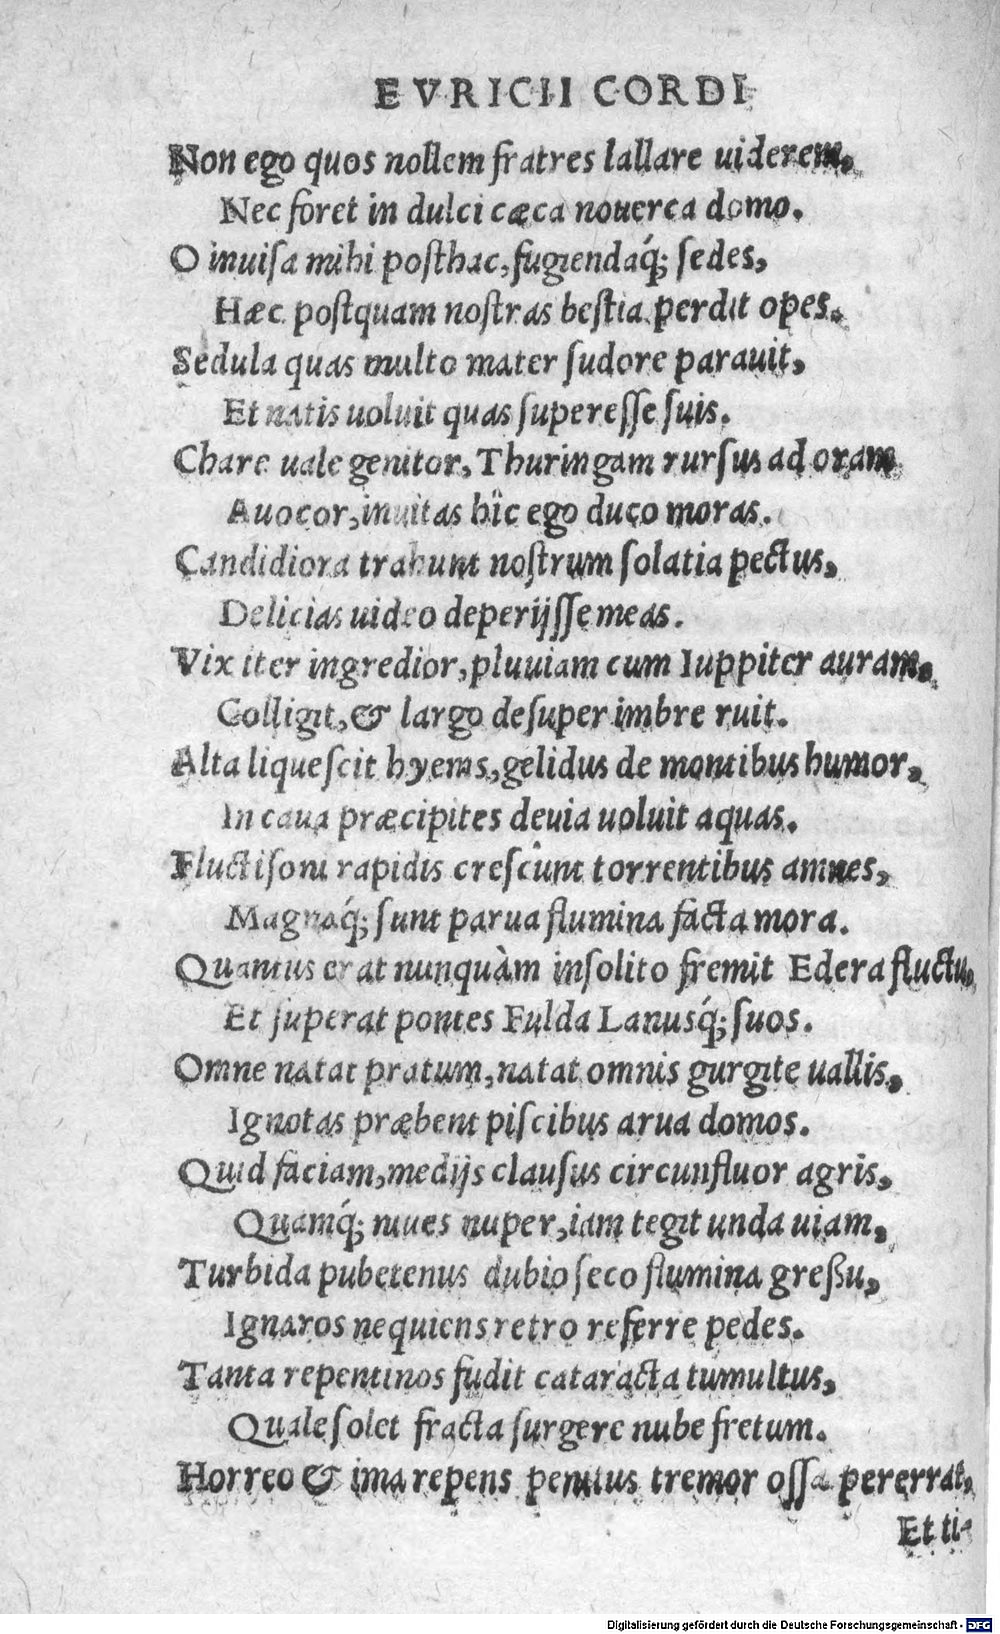 EVRICII CORDI
Non ego quos nollem fratres lallare uiderem,
Nec foret in dulci cæca nouerca domo.
O inuiſa mihi poſthac, fugiendaq́; ſedes,
Hæc poſtquam noſtras beſtia perdit opes.
Sedula quas multo mater ſudore parauit,
Et natis uoluit quas ſupereſſe ſuis.
Chare uale genitor, Thuringam rurſus ad oram
Auocor, inuitas hîc ego duco moras.
Candidiora trahunt noſtrum ſolatia pectus,
Delicias uideo deperijſſe meas.
Vix iter ingredior, pluuiam cum Iuppiter auram,
Colligit, & largo deſuper imbre ruit.
Alta liqueſcit hyems, gelidus de montibus humor,
In caua præcipites deuia uoluit aquas.
Fluctiſoni rapidis creſcûnt torrentibus amnes,
Magnaq́; ſunt parua flumina facta mora.
Quantus erat nunquàm inſolito fremit Edera fluctu,
Et ſuperat pontes Fulda Lanusq́; ſuos.
Omne natat pratum, natat omnis gurgite uallis,
Ignotas præbent piſcibus arua domos.
Quid faciam, medijs clauſus circunfluor agris,
Quamq́; niues nuper, iam tegit unda uiam,
Turbida pubetenus dubio ſeco flumina greßu,
Ignaros nequiens retro referre pedes.
Tanta repentinos fudit cataracta tumultus,
Quale ſolet fracta ſurgere nube fretum.
Horreo & ima repens penitus tremor oſſa pererrat,
Et ti-
Digitalisierung gefördert durch die Deutsche Forschungsgemeinschaft - DFG